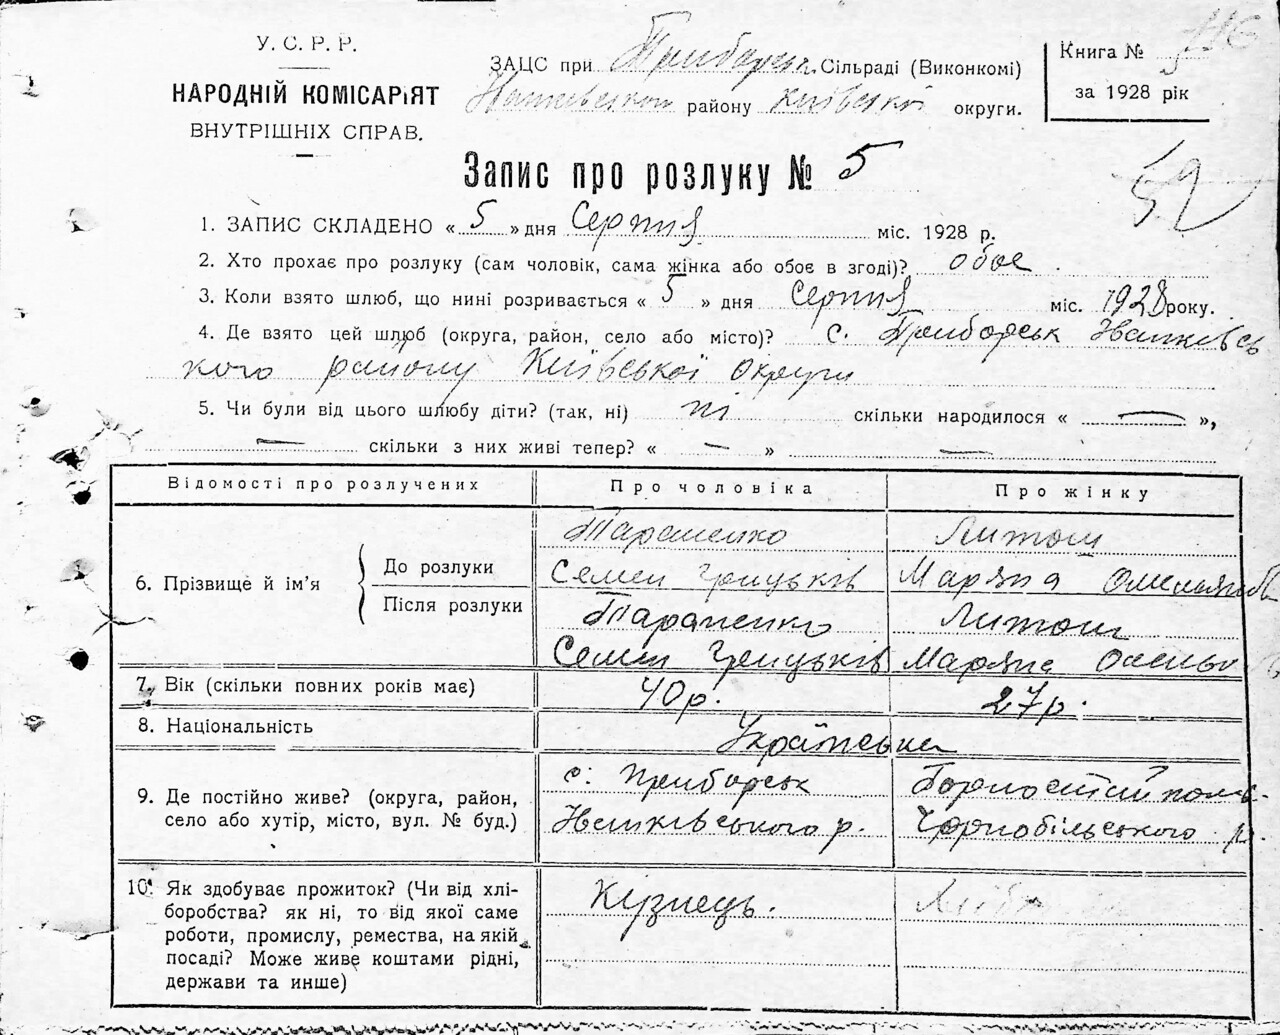 У. С. Р. Р.
НАРОДНІЙ КОМІСАРІЯТ
ВНУТРІШНІХ СПРАВ.
ЗАЦС при Приборськ. Сільраді (Виконкомі)
району Київської округи.
Книга №
за 1928 рік
116
52
Запис про розлуку № 5
1. ЗАПИС СКЛАДЕНО « 5 » дня Серпня міс. 1928 р.
2. Хто прохає про розлуку (сам чоловік, сама жінка або обоє в згоді)? обое
3. Коли взято шлюб, що нині розривається « 5 » дня Серпня міс. 1928 року.
4. Де взято цей шлюб (округа, район, село або місто)? с. Приборськ Иванковсь
кого району Київської округи
5. Чи були від цього шлюбу діти? (так, ні) ні скільки народилося « — »,
— скільки з них живі тепер? « — » —
Відомості про розлучених Про чоловіка Про жінку
6. Прізвище й ім'я
До розлуки
Тараненко Литош
Семен Грицьків Маряна
Після розлуки
Тараненко Литош
Семен Грицьків Маряна
7. Вік (скільки повних років має) 40 р. 27 р.
8. Національність Українська
9. Де постійно живе? (округа, район, село або хутір, місто, вул. № буд.)
с. Приборськ
Иванківського р. Чорнобільського р.
10. Як здобуває прожиток? (Чи від хлі-
боробства? як ні, то від якої саме
роботи, промислу, ремества, на якій
посаді? Може живе коштами рідні,
держави та инше)
Кузнець.